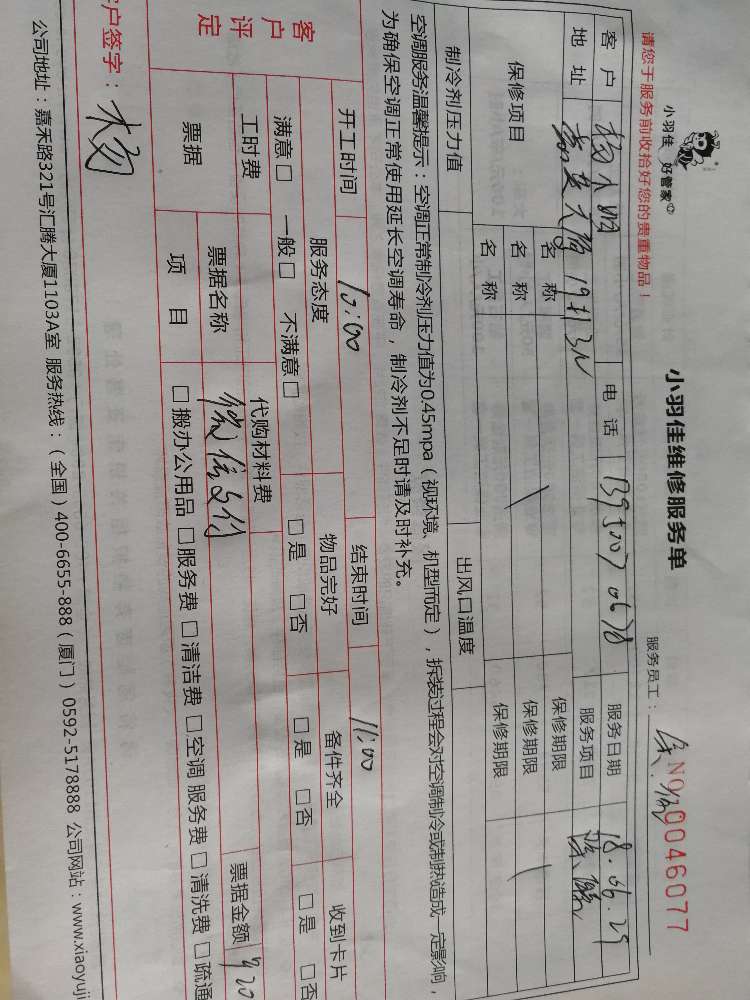 小羽佳 好管家
小羽佳维修服务单
NO 0046077
请您于服务前收拾好您的贵重物品！
服务员工：
客户 杨小姐 电话 服务日期 18.06.29
地址 服务项目
保修项目 名称 保修期限
名称 保修期限
名称 保修期限
制冷剂压力值 出风口温度
空调服务温馨提示：空调正常制冷剂压力值为0.45mpa（视环境、机型而定），拆装过程会对空调制冷或制热造成一定影响，
为确保空调正常使用延长空调寿命，制冷剂不足时请及时补充。
开工时间 10:00 结束时间 11:00
客户评定 服务态度 物品完好 备件齐全 收到卡片
满意□ 一般□ 不满意□ □是 □否 □是 □否 □是 □否
工时费 代购材料费
票据 票据名称 微信支付 票据金额
项目 □搬办公用品 □服务费 □清洁费 □空调服务费 □清洗费 □疏通
户签字：杨
公司地址：嘉禾路321号汇腾大厦1103A室 服务热线：（全国）400-6655-888（厦门）0592-5178888 公司网站：www.xiaoyuji